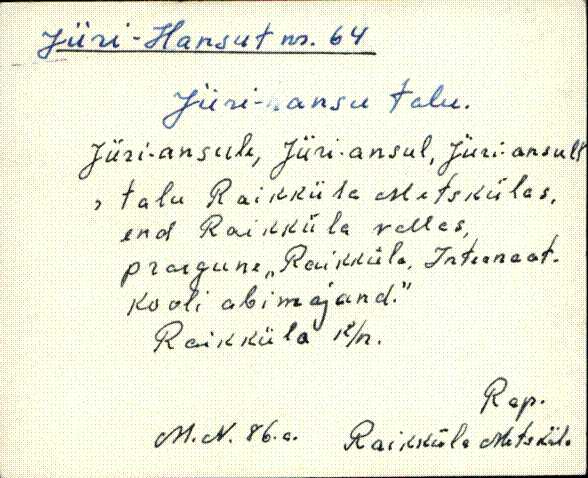 Jüri-Hansut nr. 64
Jüri-hansu talu.
Jüri-ansule, Jüri-ansul, Jüri-ansult
, talu Raikküla Metskülas,
end Raikküla vallas,
praegune „Raikküla Internaat-
kooli abimajand."
Raikküla k/n.
Rap.
M.N. 86.a. Raikküla Metsküla